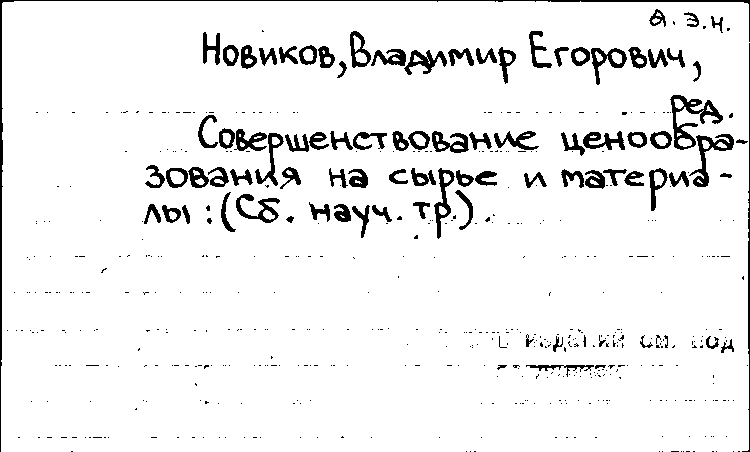 д. э. н.
Новиков, Владимир Егорович,
ред.
Совершенствование ценообра-
зования на сырье и материа-
лы : (Сб. науч. тр.).
изданий см. под